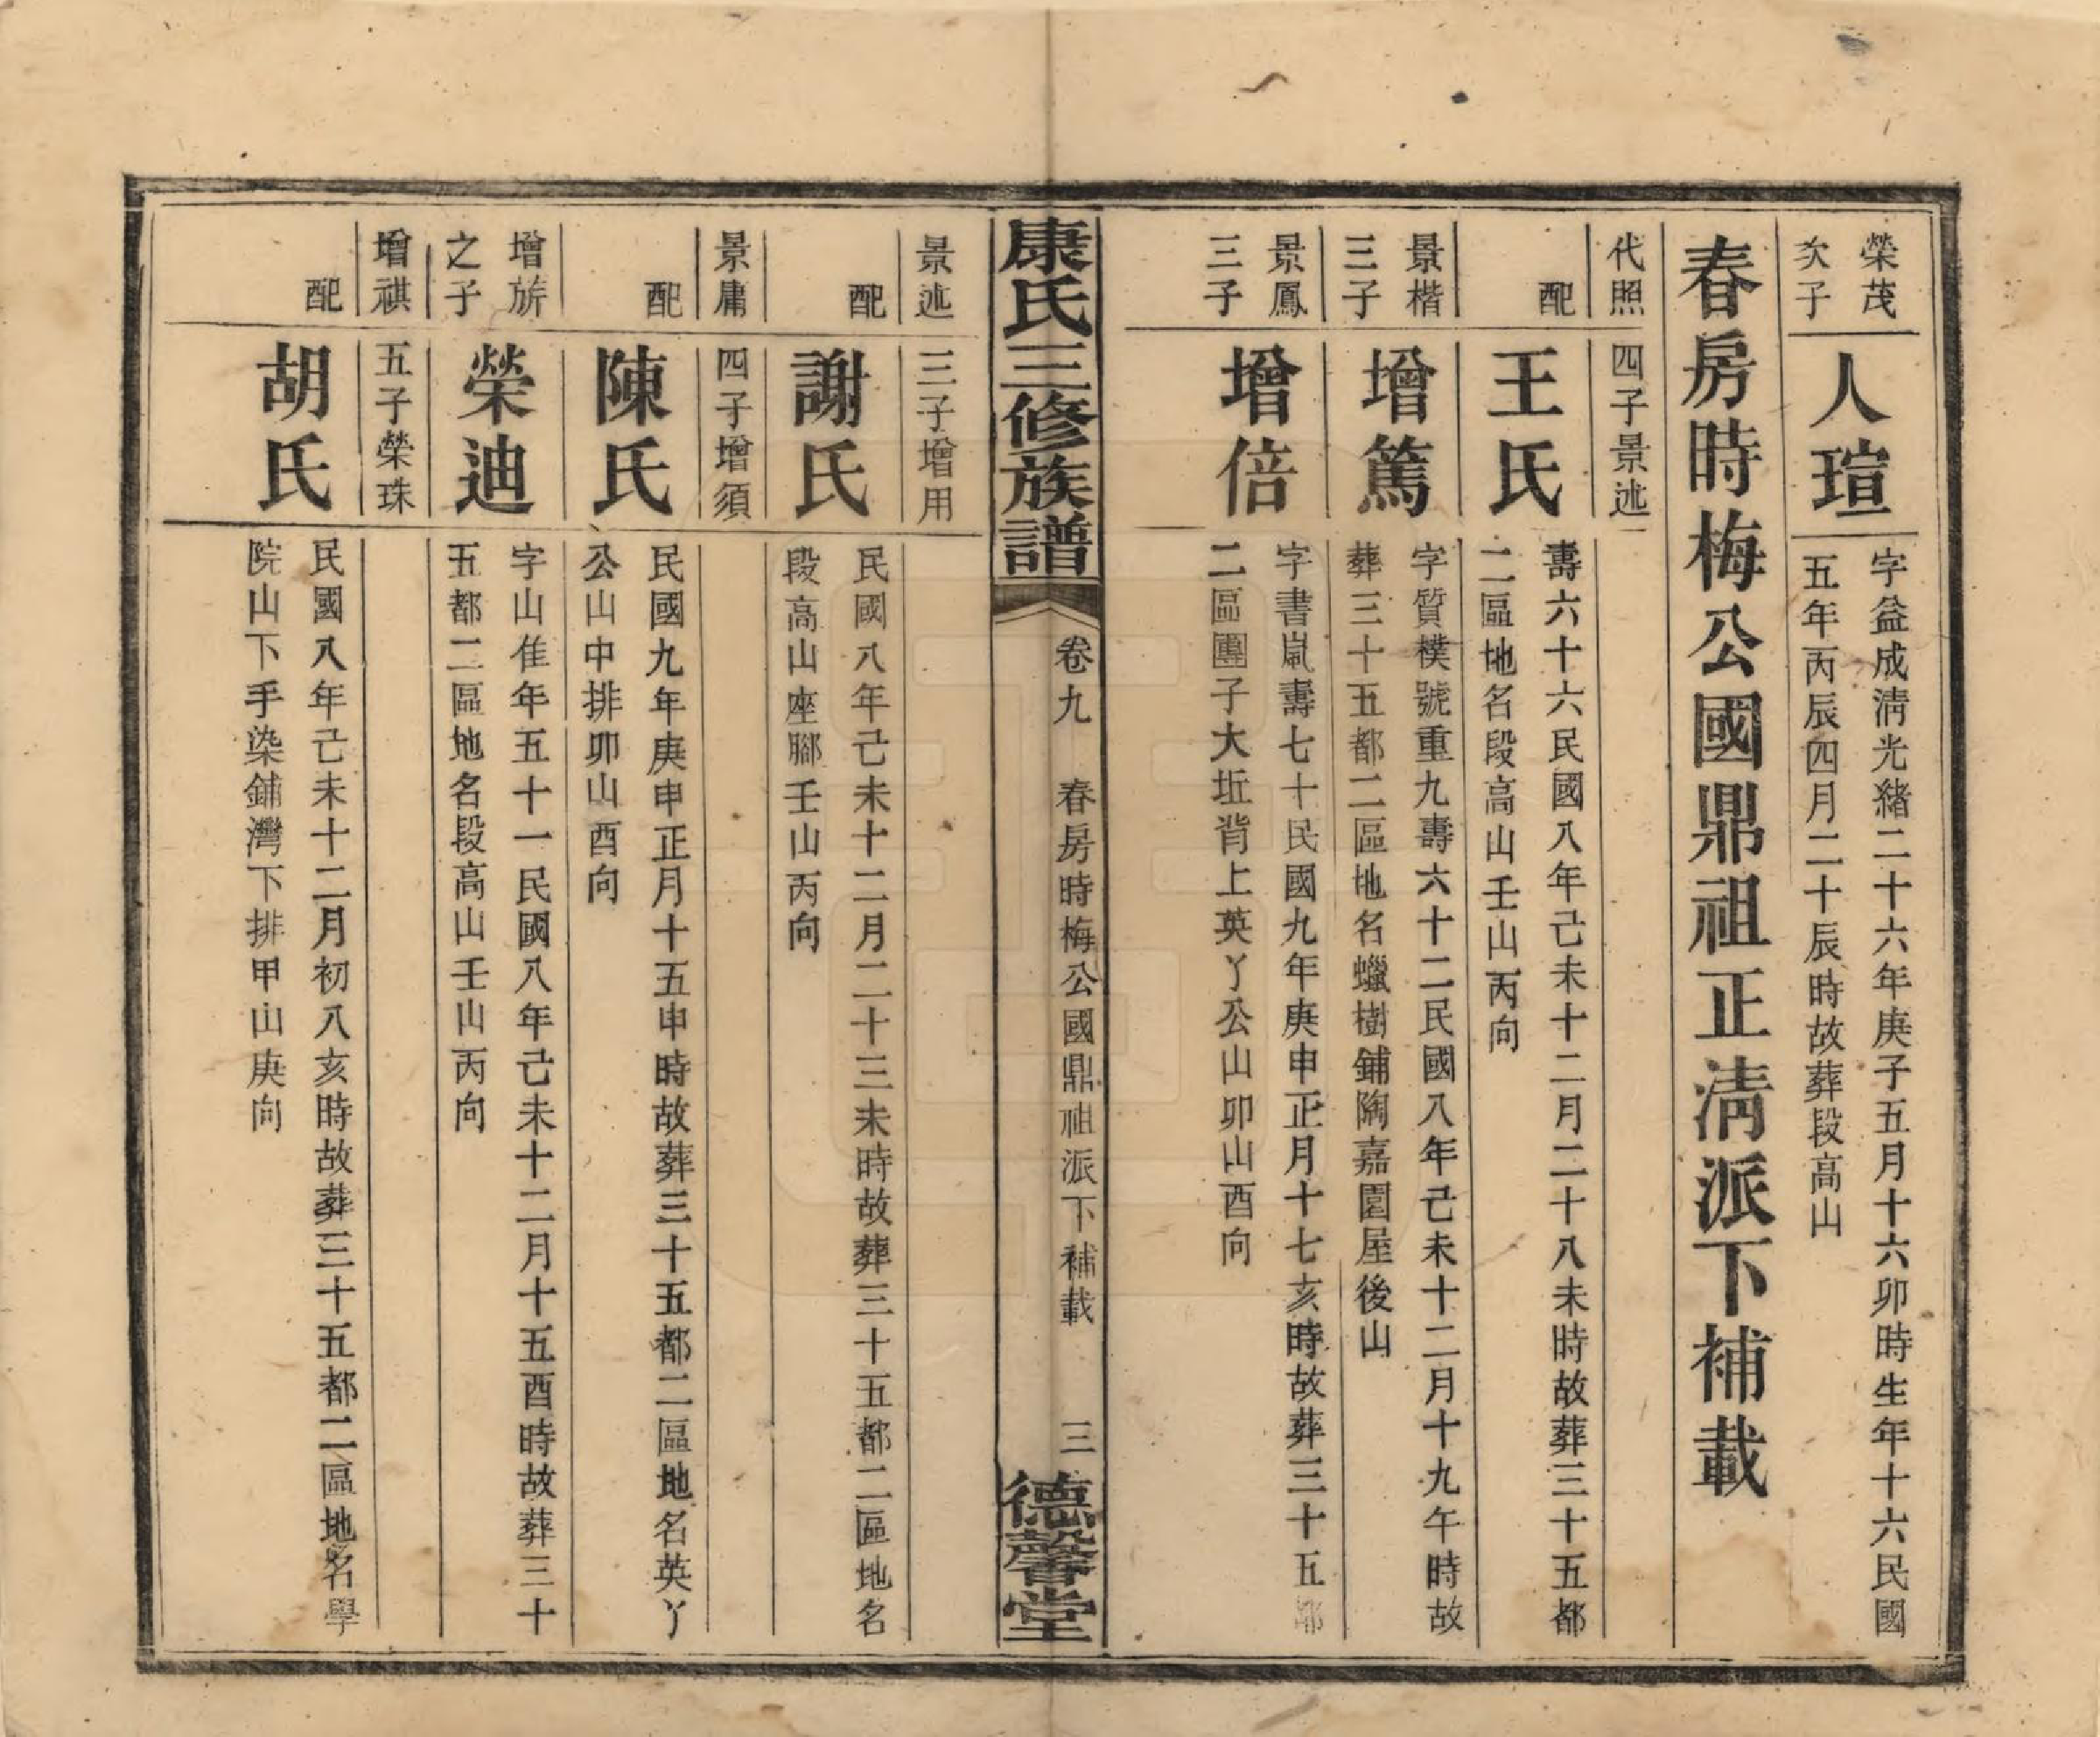 榮茂
次子
人瑄
字益成清光緒二十六年庚子五月十六卯時生年十六民國
五年丙辰四月二十辰時故葬段高山
春房時梅公國鼎祖正淸派下補載
代照
四子景述
配
王氏
壽六十六民國八年己未十二月二十八未時故葬三十五都
二區地名段高山壬山丙向
景楷
三子
增篤
字質樸號重九壽六十二民國八年己未十二月十九午時故
葬三十五都二區地名蠟樹鋪陶嘉園屋後山
景鳳
三子
增倍
字書嵐壽七十民國九年庚申正月十七亥時故葬三十五都
二區團子大坵背上英丫公山卯山酉向
康氏三修族譜
卷九
春房時梅公國鼎祖派下補載
三
德馨堂
景述
三子增用
配
謝氏
民國八年己未十二月二十三未時故葬三十五都二區地名
段高山座腳壬山丙向
景庸
四子增須
配
陳氏
民國九年庚申正月十五申時故葬三十五都二區地名英丫
公山中排卯山酉向
增旂
之子
榮迪
字山隹年五十一民國八年己未十二月十五酉時故葬三十
五都二區地名段高山壬山丙向
增祺
五子榮珠
配
胡氏
民國八年己未十二月初八亥時故葬三十五都二區地名學
院山下手染鋪灣下排甲山庚向